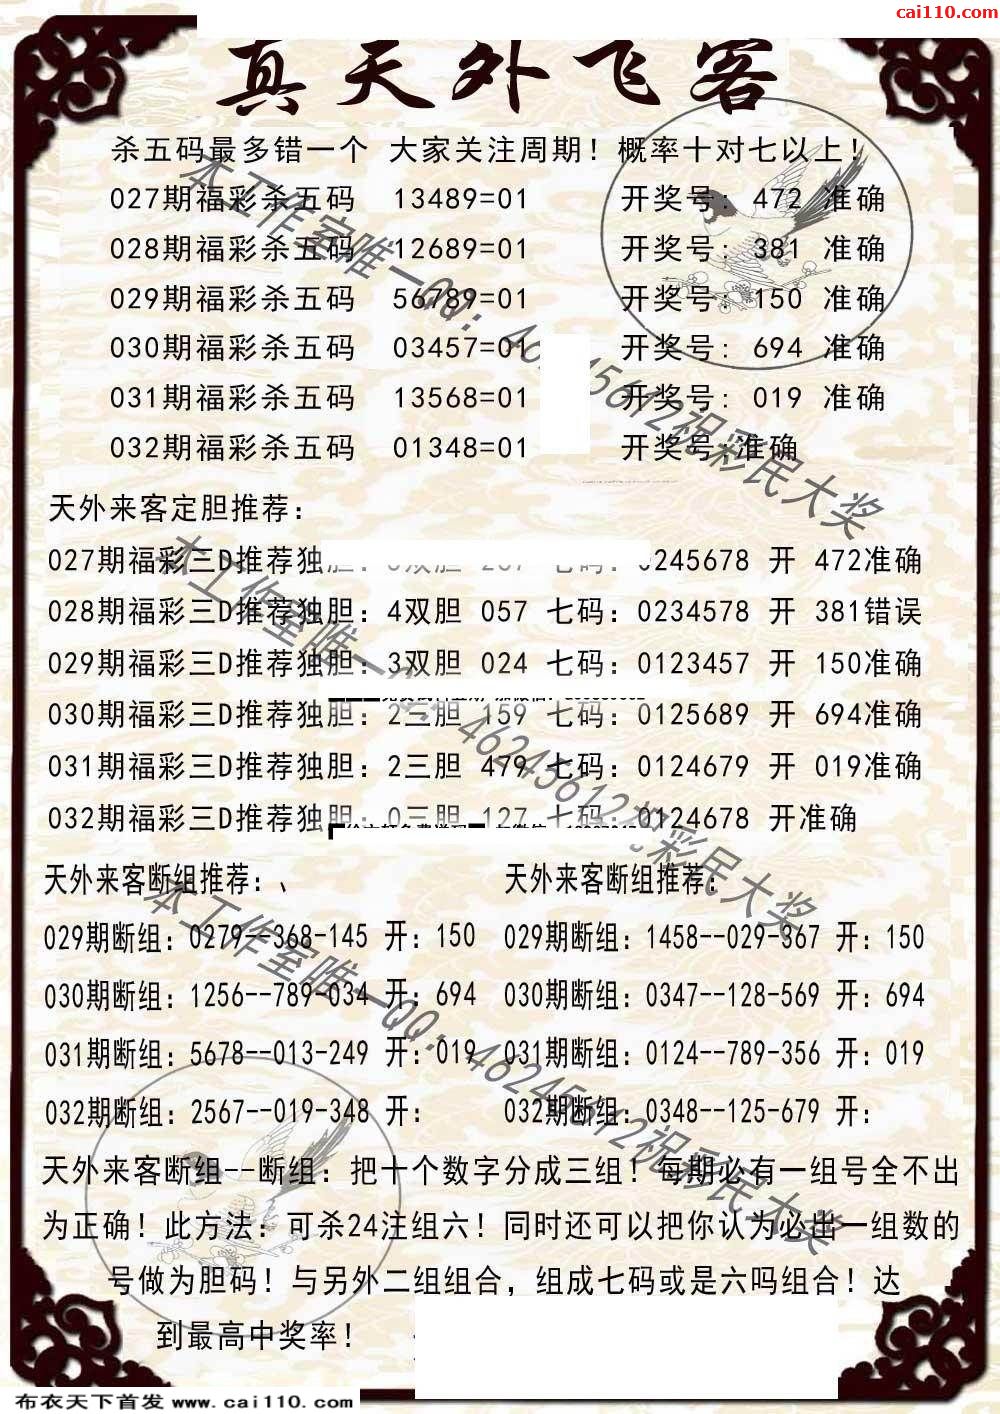 cai110.com
真天外飞客
杀五码最多错一个 大家关注周期！概率十对七以上！
027期福彩杀五码 13489=01 开奖号：472 准确
028期福彩杀五码 12689=01 开奖号：381 准确
029期福彩杀五码 56789=01 开奖号：150 准确
030期福彩杀五码 03457=01 开奖号：694 准确
031期福彩杀五码 13568=01 开奖号：019 准确
032期福彩杀五码 01348=01 开奖号:准确
天外来客定胆推荐：
027期福彩三D推荐独胆： 双胆 七码：0245678 开 472准确
028期福彩三D推荐独胆：4双胆 057 七码：0234578 开 381错误
029期福彩三D推荐独胆：3双胆 024 七码：0123457 开 150准确
030期福彩三D推荐独胆：2三胆 159 七码：0125689 开 694准确
031期福彩三D推荐独胆：2三胆 479 七码：0124679 开 019准确
032期福彩三D推荐独胆：0三胆 127 七码：0124678 开准确
天外来客断组推荐：、 天外来客断组推荐：
029期断组：0279--368-145 开：150 029期断组：1458--029-367 开：150
030期断组：1256--789-034 开：694 030期断组：0347--128-569 开：694
031期断组：5678--013-249 开：019 031期断组：0124--789-356 开：019
032期断组：2567--019-348 开： 032期断组：0348--125-679 开：
天外来客断组--断组：把十个数字分成三组！每期必有一组号全不出
为正确！此方法：可杀24注组六！同时还可以把你认为必出一组数的
号做为胆码！与另外二组组合，组成七码或是六吗组合！达
到最高中奖率！
本工作室唯一QQ：46245612祝彩民大奖
本工作室唯一QQ：46245612祝彩民大奖
本工作室唯一QQ：46245612祝彩民大奖
布衣天下首发 www.cai110.com